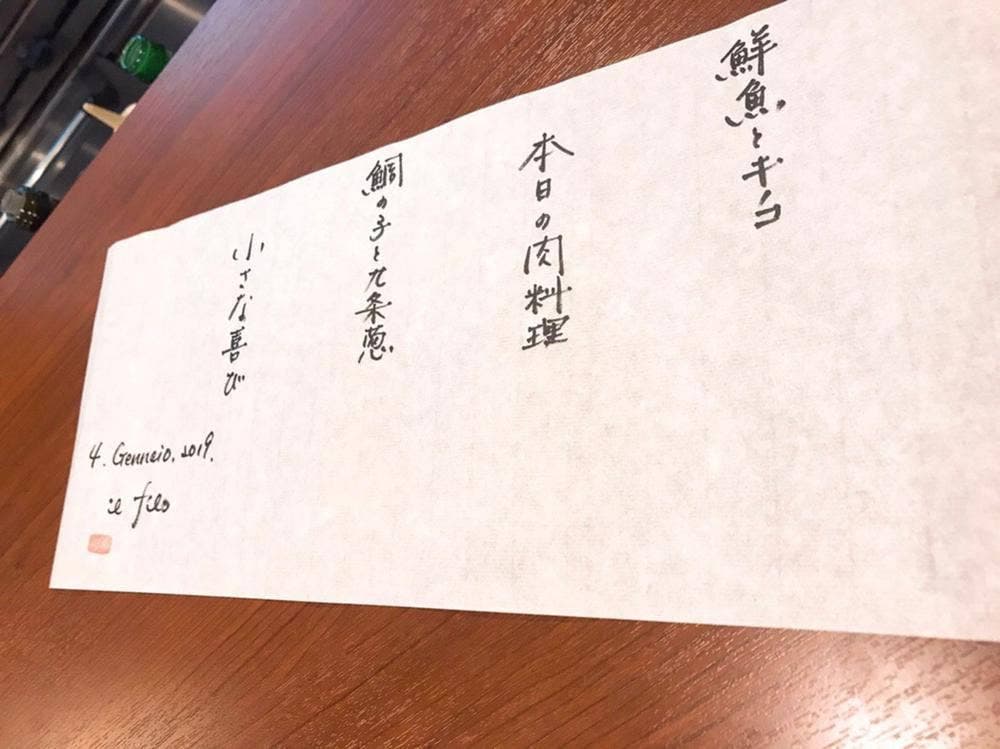 鮮魚とキノコ
本日の肉料理
鯛の子と九条葱
小さな喜び
4. Gennaio. 2019.
il filo